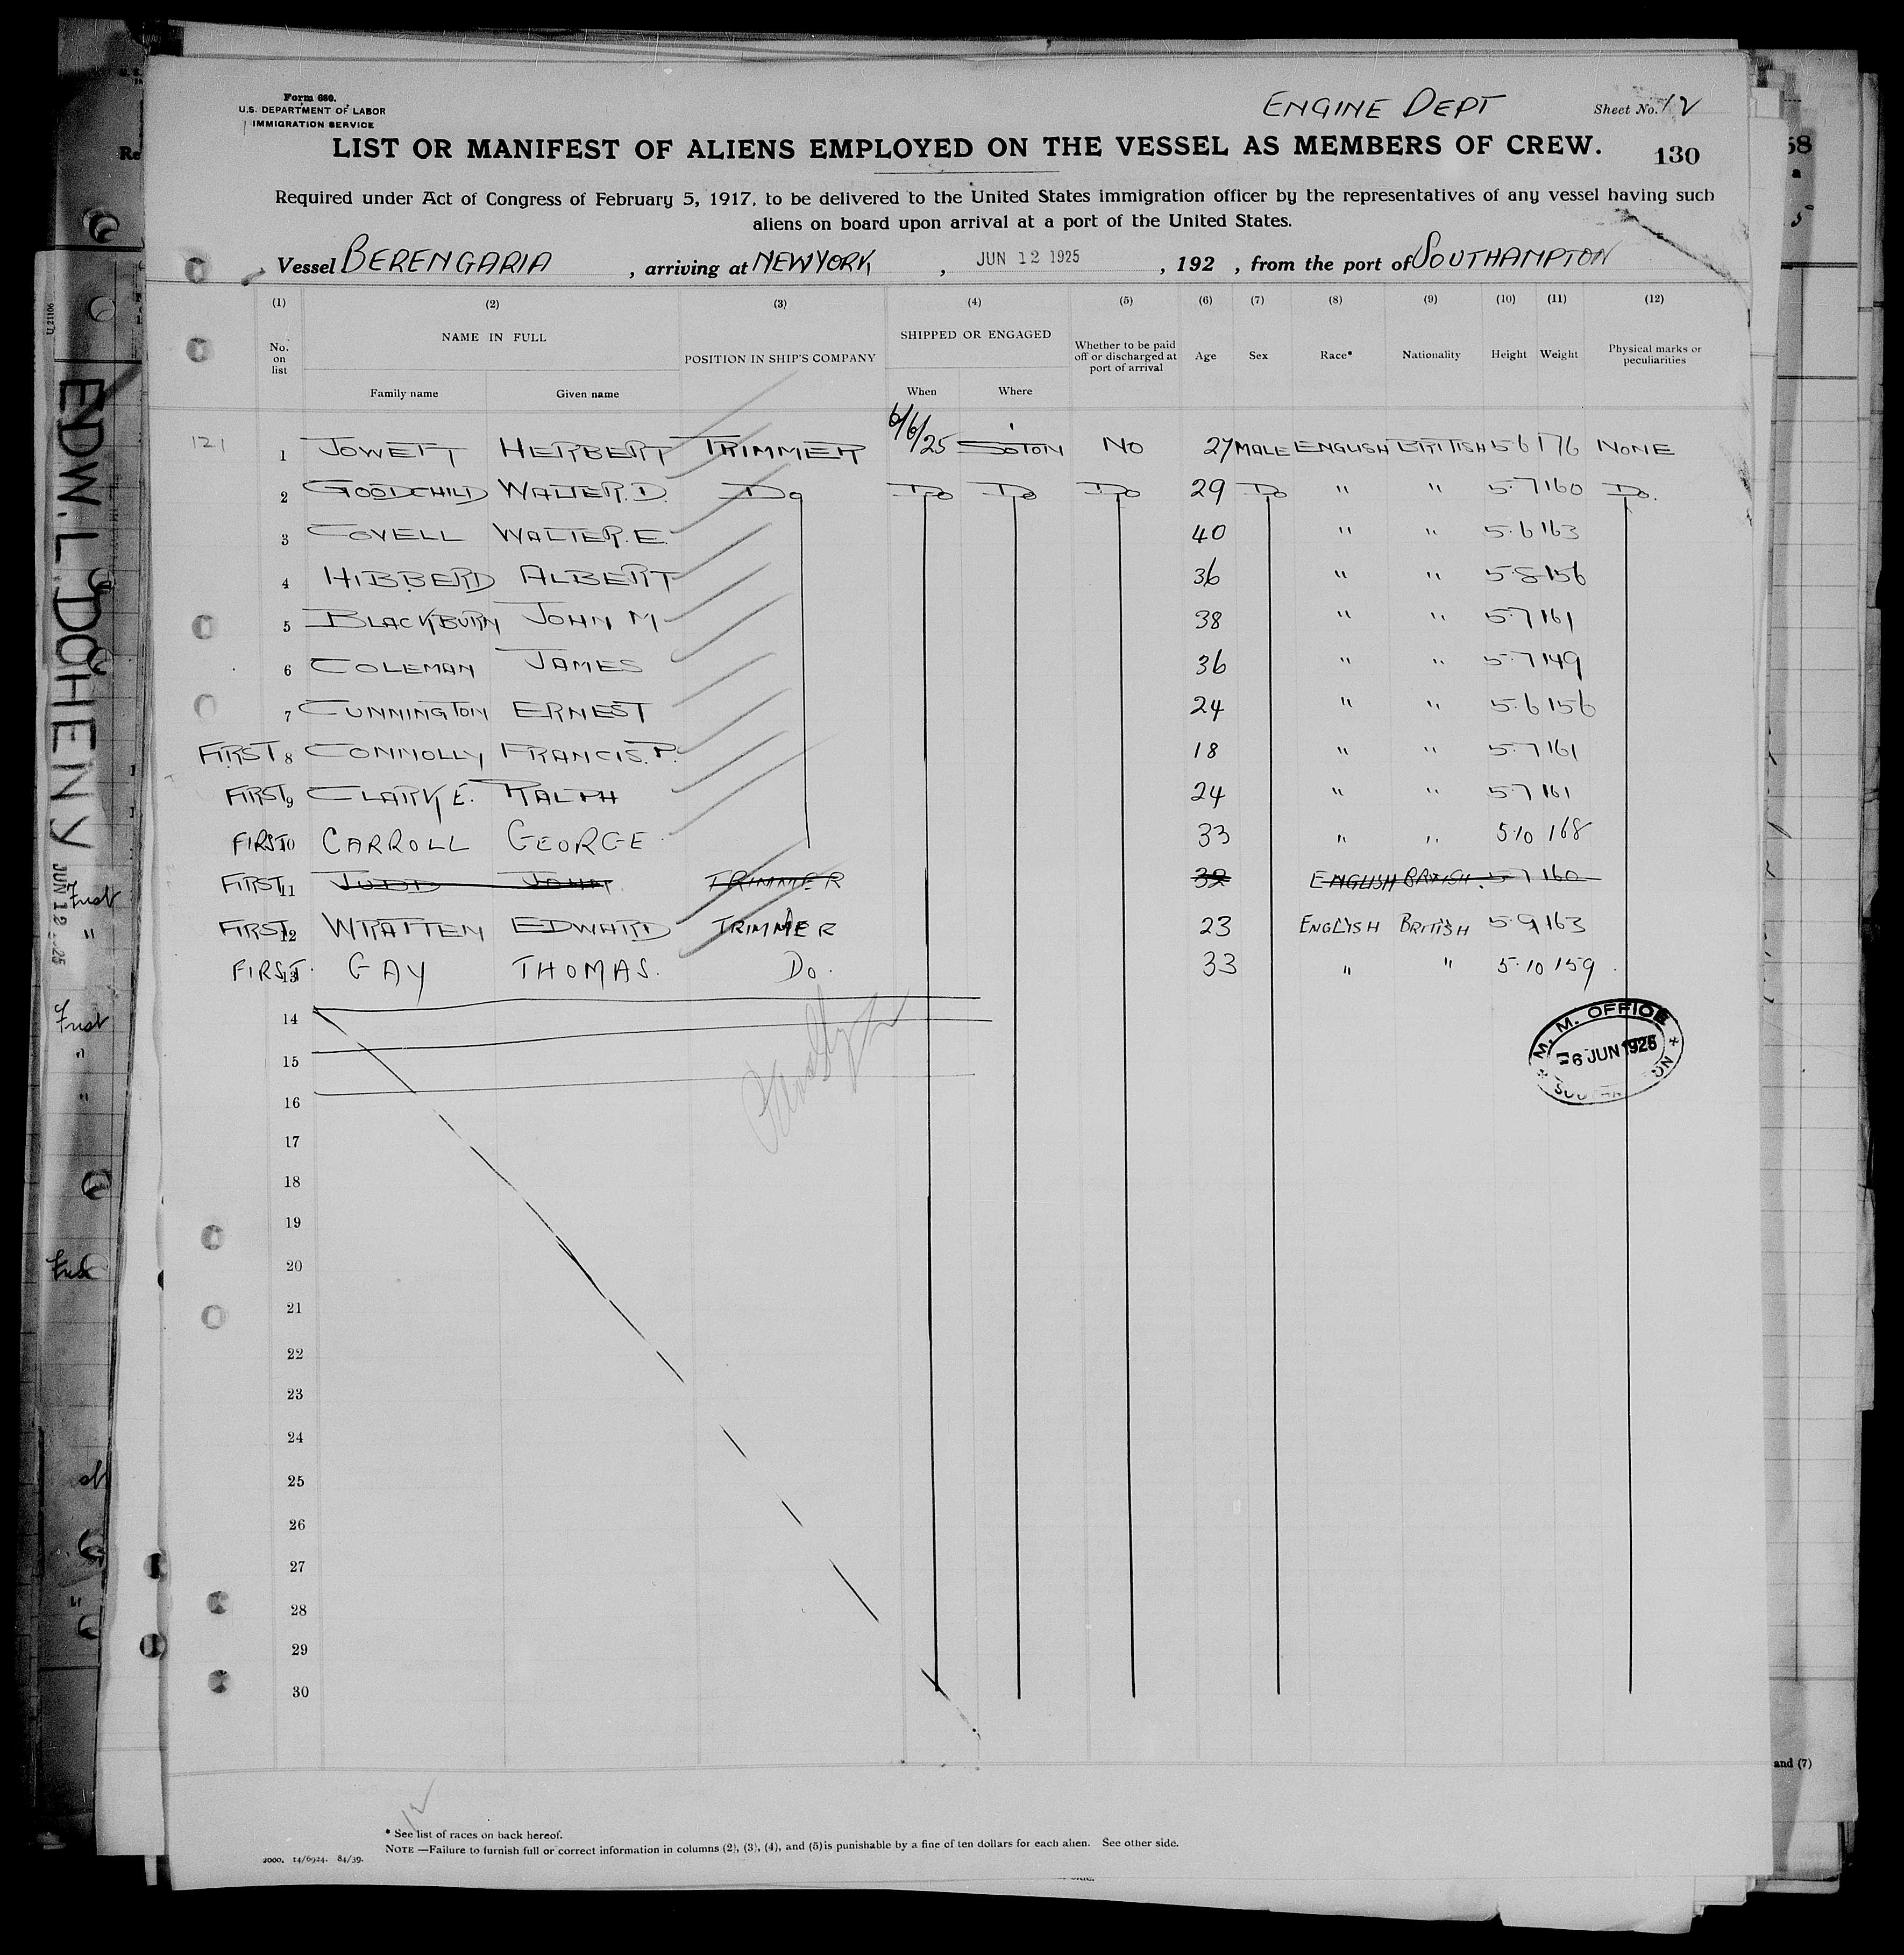 Form 680.
U.S. DEPARTMENT OF LABOR
IMMIGRATION SERVICE
ENGINE DEPT
Sheet No. 12
LIST OR MANIFEST OF ALIENS EMPLOYED ON THE VESSEL AS MEMBERS OF CREW.
130
Required under Act of Congress of February 5, 1917, to be delivered to the United States immigration officer by the representatives of any vessel having such
aliens on board upon arrival at a port of the United States.
Vessel BERENGARIA, arriving at NEW YORK, JUN 12 1925, 192 , from the port of SOUTHAMPTON
(1) (2) (3) (4) (5) (6) (7) (8) (9) (10) (11) (12)
No. on list NAME IN FULL POSITION IN SHIP'S COMPANY SHIPPED OR ENGAGED Whether to be paid off or discharged at port of arrival Age Sex Race* Nationality Height Weight Physical marks or peculiarities
Family name Given name When Where
121 1 JOWETT HERBERT TRIMMER 6/6/25 S'OTON NO 27 MALE ENGLISH BRITISH 5 6 176 NONE
2 GOODCHILD WALTER. D. Do Do Do Do 29 Do " " 5.7 160 Do.
3 COVELL WALTER. E. 40 " " 5.6 163
4 HIBBERD ALBERT 36 " " 5.8 156
5 BLACKBURN JOHN M 38 " " 5.7 161
6 COLEMAN JAMES 36 " " 5.7 149
7 CUNNINGTON ERNEST 24 " " 5.6 156
FIRST 8 CONNOLLY FRANCIS. P. 18 " " 5.7 161
FIRST 9 CLARKE. RALPH 24 " " 5.7 161
FIRST 10 CARROLL GEORGE 33 " " 5.10 168
FIRST 11 JUDD JOHN TRIMMER 32 ENGLISH BRITISH. 5.7 160
FIRST 12 WRATTEN EDWARD TRIMMER 23 ENGLISH BRITISH 5.9 163
FIRST 13 GAY THOMAS. Do. 33 " " 5.10 159
14
15
16
17
18
19
20
21
22
23
24
25
26
27
28
29
30
M. M. OFFICE
6 JUN 1925
* See list of races on back hereof.
NOTE —Failure to furnish full or correct information in columns (2), (3), (4), and (5) is punishable by a fine of ten dollars for each alien. See other side.
2000. 14/6924. 84/39.
EDW. L. DOHENY
JUN 12
and (7)